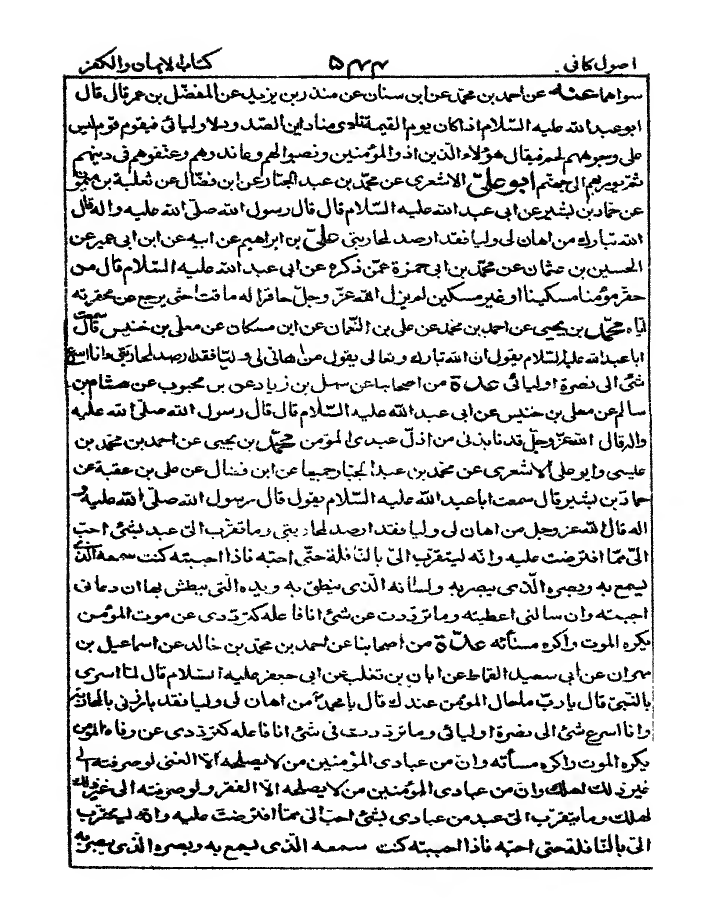 اصول كافى. ۵۴۴ كتاب الايمان والكفر
سواها عنه عن احمد بن محمّد عن ابن سنان عن منذر بن يزيد عن المفضّل بن عمر قال قال
ابو عبد الله عليه السّلام اذا كان يوم القيمة نادى مناد اين الصّدود لاوليائى فيقوم قوم ليس
على وجوههم لحم فيقال هؤلاء الّذين اذوا المؤمنين ونصبوا لهم وعاندوهم وعنّفوهم فى دينهم
ثمّ يؤمر بهم الى جهنّم ابو علىّ الاشعرى عن محمّد بن عبد الجبّار عن ابن فضّال عن ثعلبة بن ميمون
عن حمّاد بن بشير عن ابى عبد الله عليه السّلام قال قال رسول الله صلّى الله عليه واله قال
الله تبارك من اهان لى وليا فقد ارصد لمحاربتى علىّ بن ابراهيم عن ابيه عن ابن ابى عمير عن
الحسين بن عثمان عن محمّد بن ابى حمزة عمّن ذكره عن ابى عبد الله عليه السّلام قال من
حقّر مؤمنا مسكينا او غير مسكين لم يزل الله عزّ وجلّ حاقرا له ماقتا حتّى يرجع عن محقرته
ايّاه محمّد بن يحيى عن احمد بن محمّد عن على بن النّعمان عن ابن مسكان عن معلى بن خنيس قال سمعت
ابا عبد الله عليه السّلام يقول ان الله تبارك وتعالى يقول من اهان لى وليّا فقد ارصد لمحاربتى وانا اسرع
شئ الى نصرة اوليائى عدّة من اصحابنا عن سهل بن زياد عن بن محبوب عن هشام بن
سالم عن معلى بن خنيس عن ابى عبد الله عليه السّلام قال قال رسول الله صلّى الله عليه
واله قال الله عزّ وجلّ قد نابذنى من اذلّ عبدى المؤمن محمّد بن يحيى عن احمد بن محمد بن
عيسى وابو على الاشعرى عن محمد بن عبد الجبار جميعا عن ابن فضال عن على بن عقبة عن
حماد بن بشير قال سمعت ابا عبد الله عليه السّلام يقول قال رسول الله صلّى الله عليه و
اله قال الله عز وجل من اهان لى وليا فقد ارصد لمحاربتى وما تقرّب الىّ عبد بشئ احبّ
الىّ ممّا افترضت عليه وانّه ليتقرب الىّ بالنّافلة حتّى احبّه فاذا احببته كنت سمعه الّذى
يسمع به وبصره الّذى يبصر به ولسانه الّذى ينطق به ويده الّتى يبطش بها ان دعانى
اجبته وان سالنى اعطيته وما تردّدت عن شئ انا فاعله كتردّدى عن موت المؤمن
يكره الموت واكره مسأته عدّة من اصحابنا عن احمد بن محمّد بن خالد عن اسماعيل بن
مهران عن ابى سعيد القماط عن ابان بن تغلب عن ابى جعفر عليه السّلام قال لمّا اسرى
بالنّبىّ قال يا ربّ ما حال المؤمن عندك قال يا محمّد من اهان لى وليا فقد بارزنى بالمحاربة
وانا اسرع شئ الى نصرة اوليائى وما تردّدت فى شئ انا فاعله كتردّدى عن وفاة المؤمن
يكره الموت واكره مسأته وان من عبادى المؤمنين من لا يصلحه الّا الغنى لو صرفته الى
غير ذلك لهلك وان من عبادى المؤمنين من لا يصلحه الّا الفقر ولو صرفته الى غير ذلك
لهلك وما يتقرّب الىّ عبد من عبادى بشئ احبّ الىّ ممّا افترضت عليه وانّه ليتقرب
الىّ بالنّافلة حتى احبّه فاذا احببته كنت سمعه الّذى يسمع به وبصره الّذى يبصر به